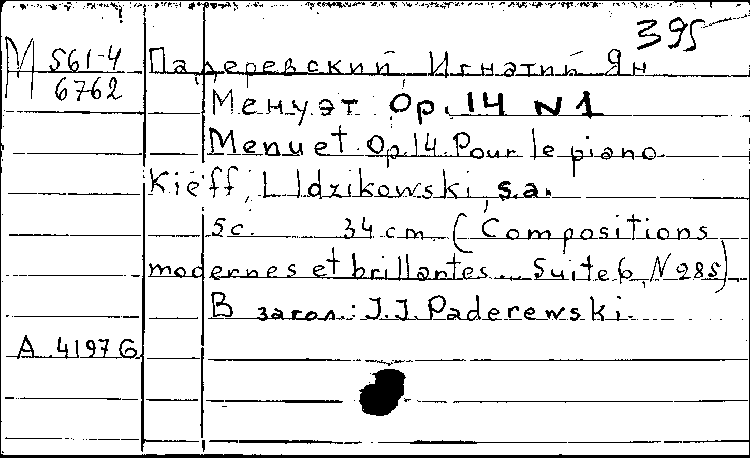 395
М 561-4
6762
Падеревский, Игнатий Ян
Менуэт Op. 14 N 1
Menuet. Op. 14. Pour le piano.
Kieff, L. Idzikowski, s.a.
5 c. 34 cm. (Compositions
modernes et brillantes... Suite 6, N 285).
В загол.: J. J. Paderewski.
А 41976